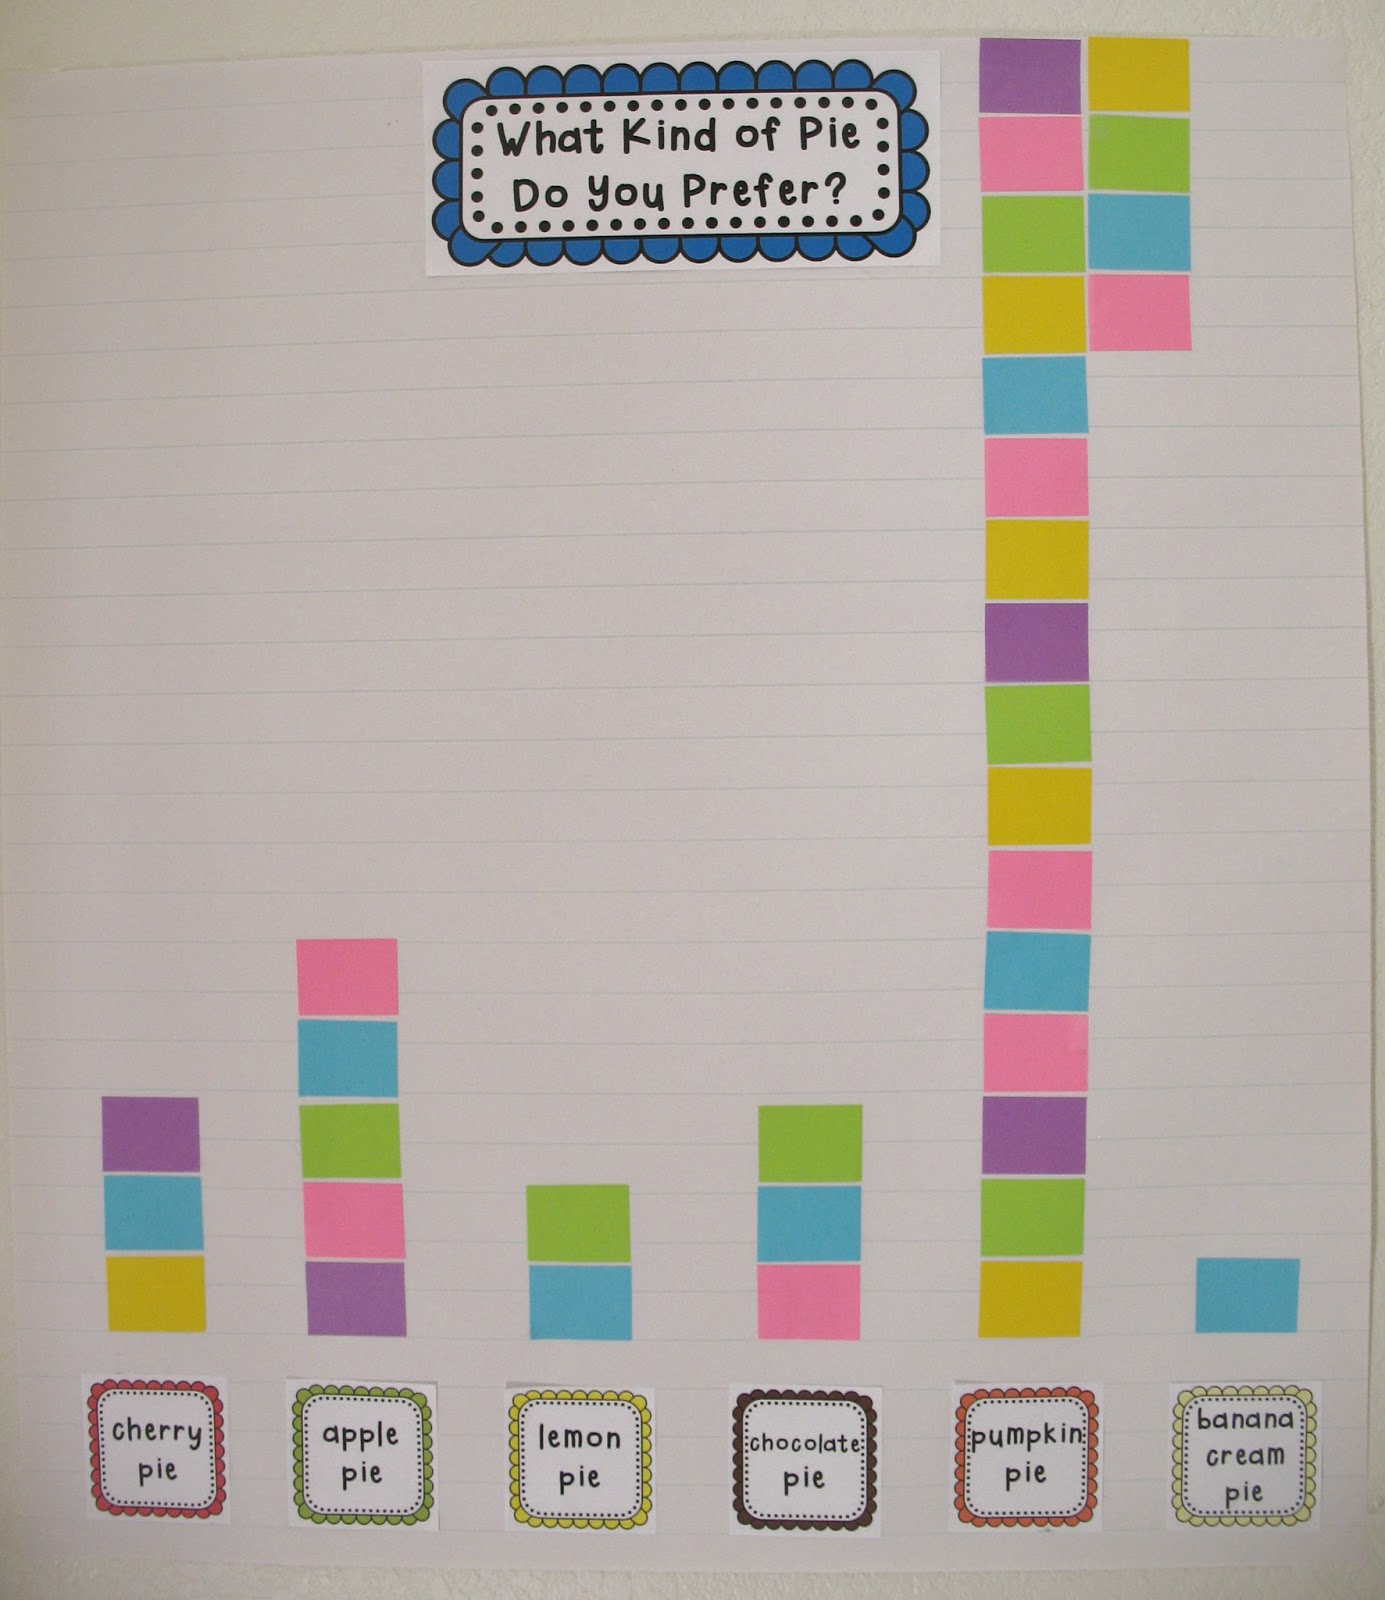 What Kind of Pie
Do You Prefer?
cherry
pie
apple
pie
lemon
pie
chocolate
pie
pumpkin
pie
banana
cream
pie